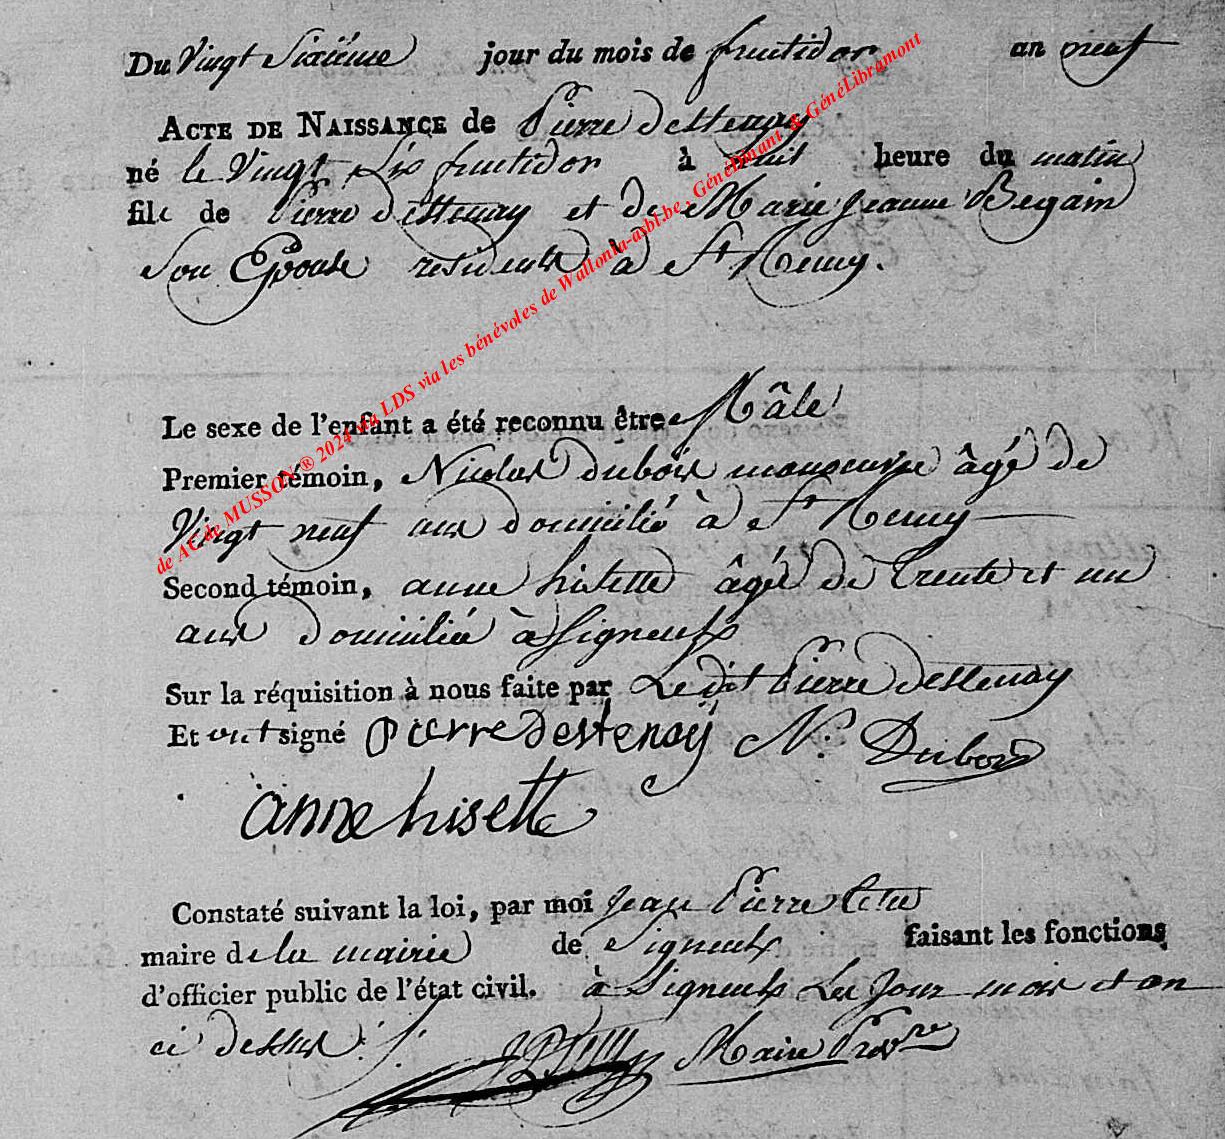 Du Vingt Sixiéme jour du mois de fructidor an neuf
ACTE DE NAISSANCE de Pierre Destenay
né le Vingt Six fructidor à huit heure du matin
fils de Pierre Destenay et de Marie Jeanne Begain
Son Epouse residents à St Remy.
Le sexe de l'enfant a été reconnu être Mâle
Premier témoin, Nicolas dubois manoeuvre âgé de
Vingt neuf ans domicilié à St Remy
Second témoin, anne hisette âgée de trente et un
ans domiciliée à Signeulx
Sur la réquisition à nous faite par Le dit Pierre destenay
Et ont signé Pierre Destenaÿ N. Dubois
anne hisette
Constaté suivant la loi, par moi Jean Pierre
maire de la mairie de Signeulx faisant les fonctions
d'officier public de l'état civil. à Signeulx Les Jour mois et an
ci dessus
Maire Provre
de AC de MUSSON ® 2024 via LDS via les bénévoles de Wallonia-asbl.be, GénéDinant & GénéLibramont